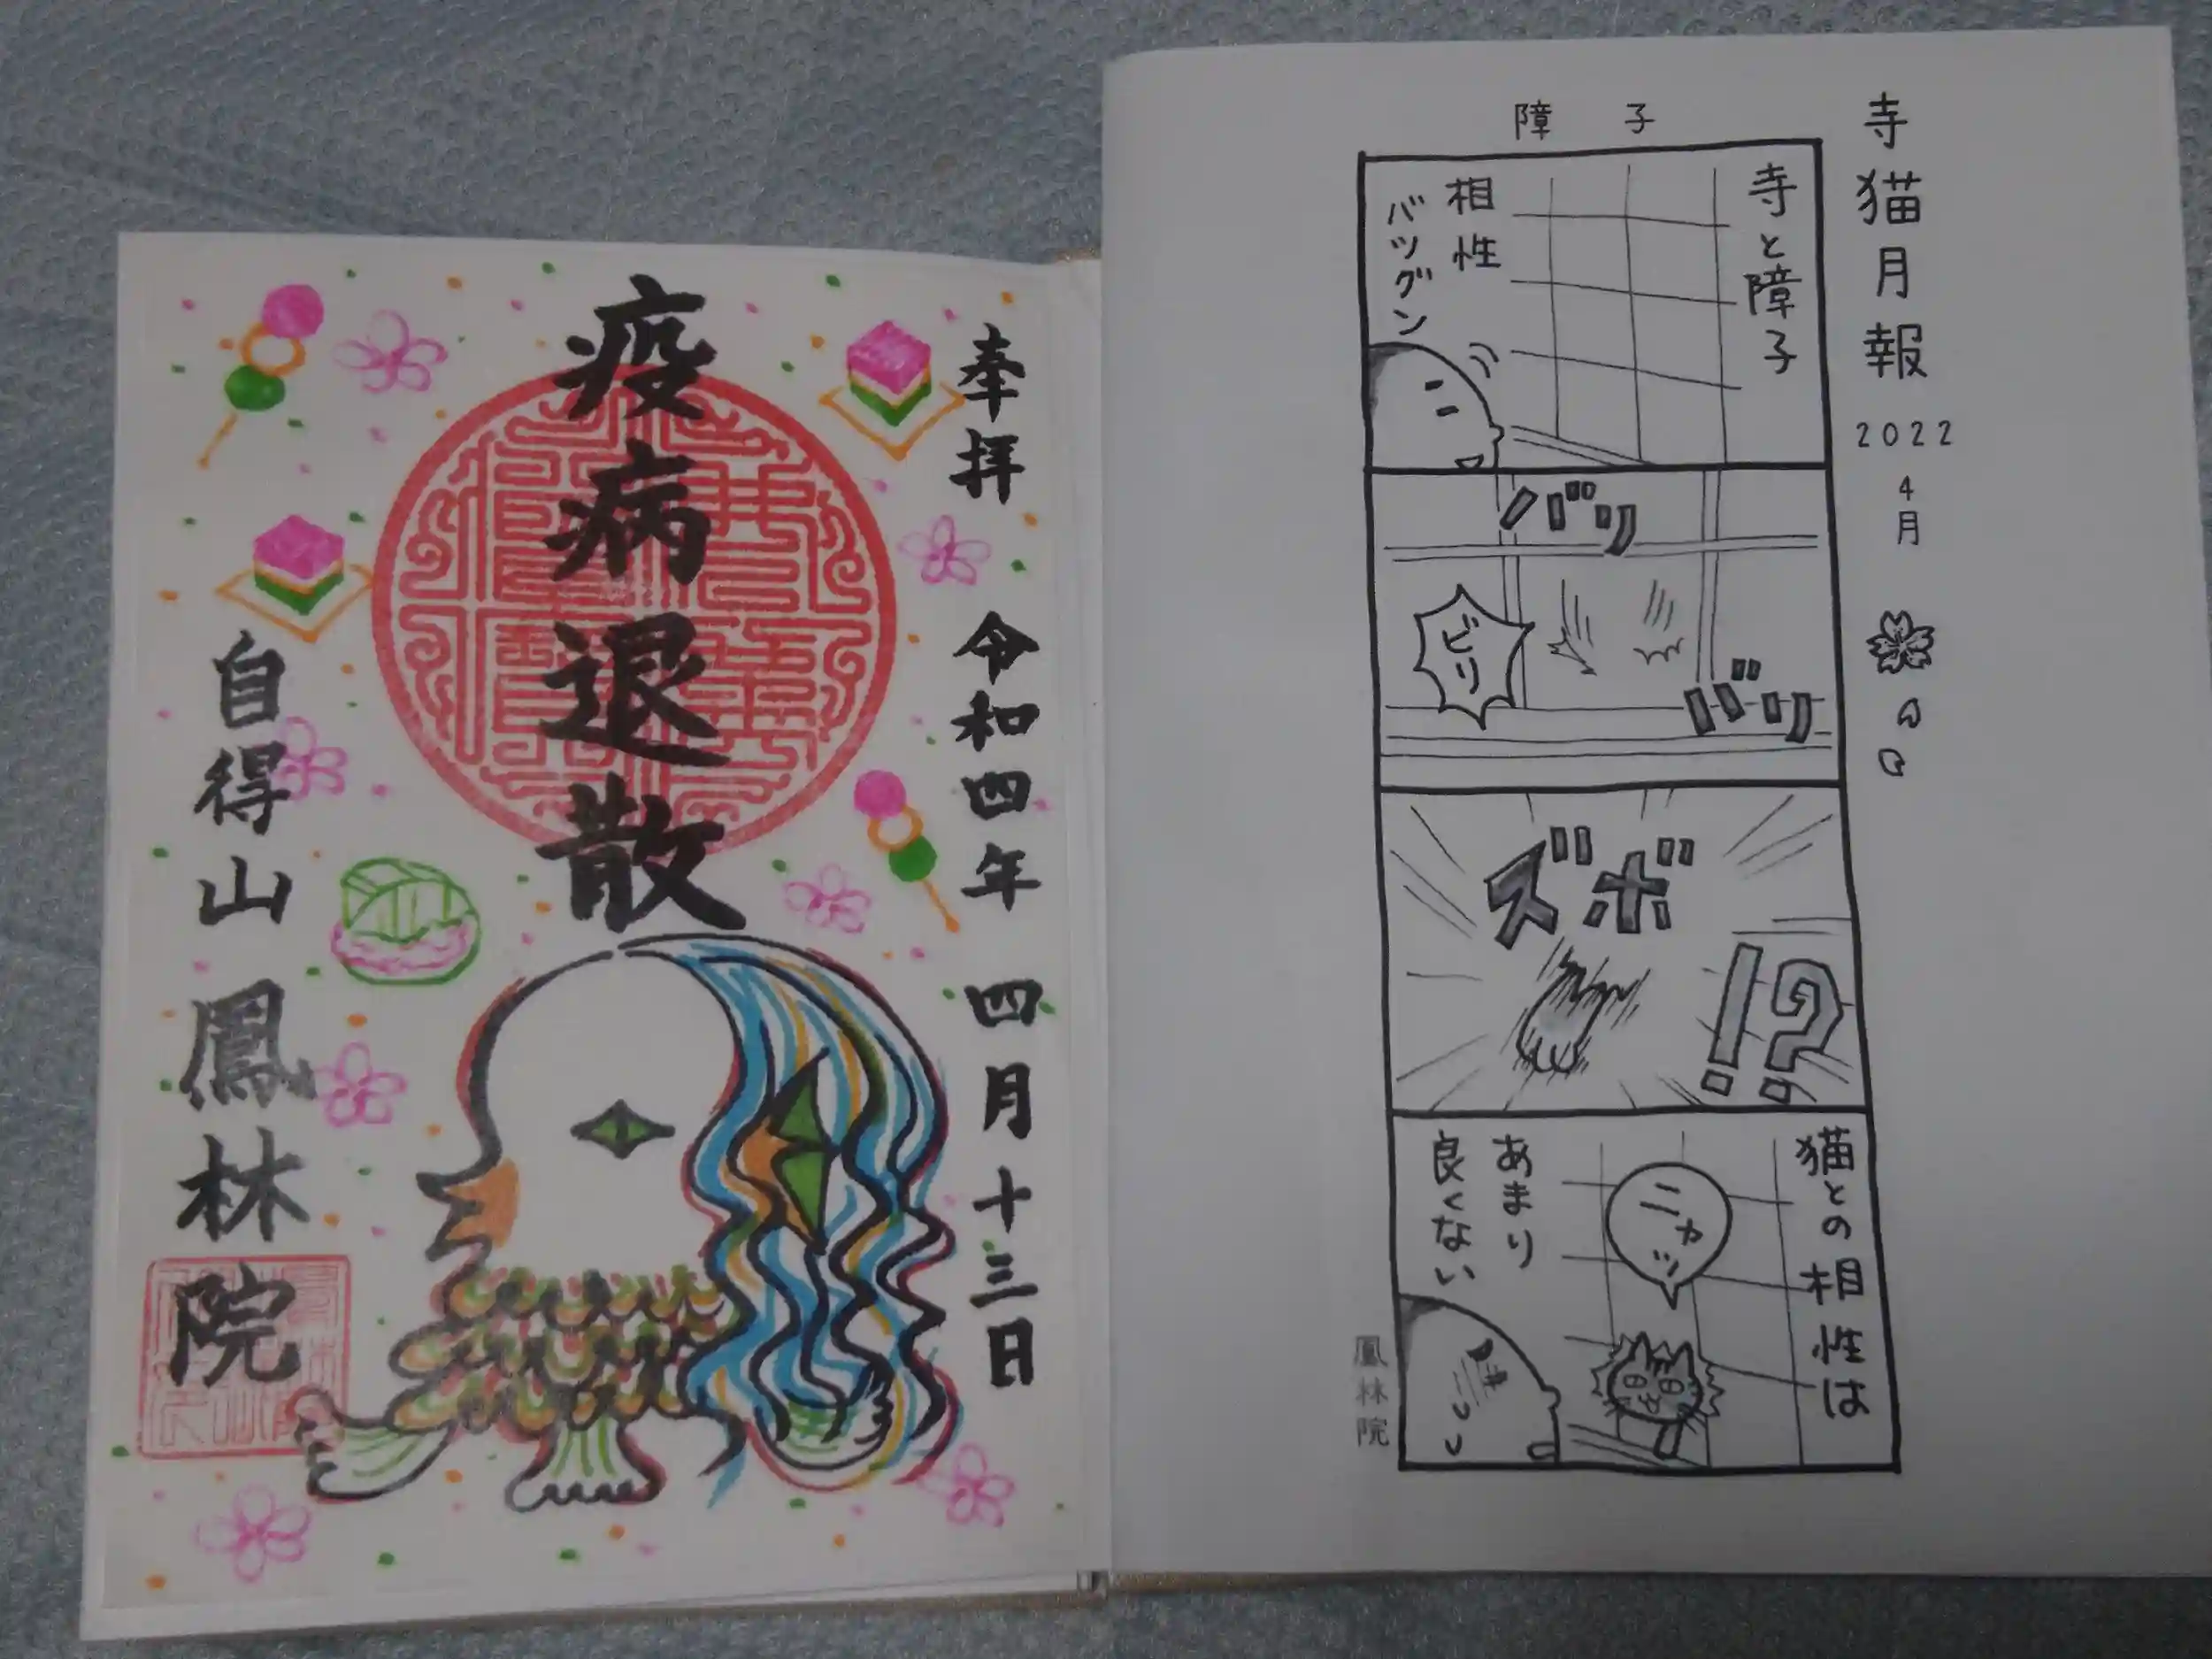 寺猫月報
2022
4月
障子
寺と障子
相性
バツグン
バリ
ビリ
バリ
ズボ
!?
猫との相性は
ニャッ
あまり
良くない
鳳林院
奉拝 令和四年 四月十三日
疫病退散
自得山 鳳林院